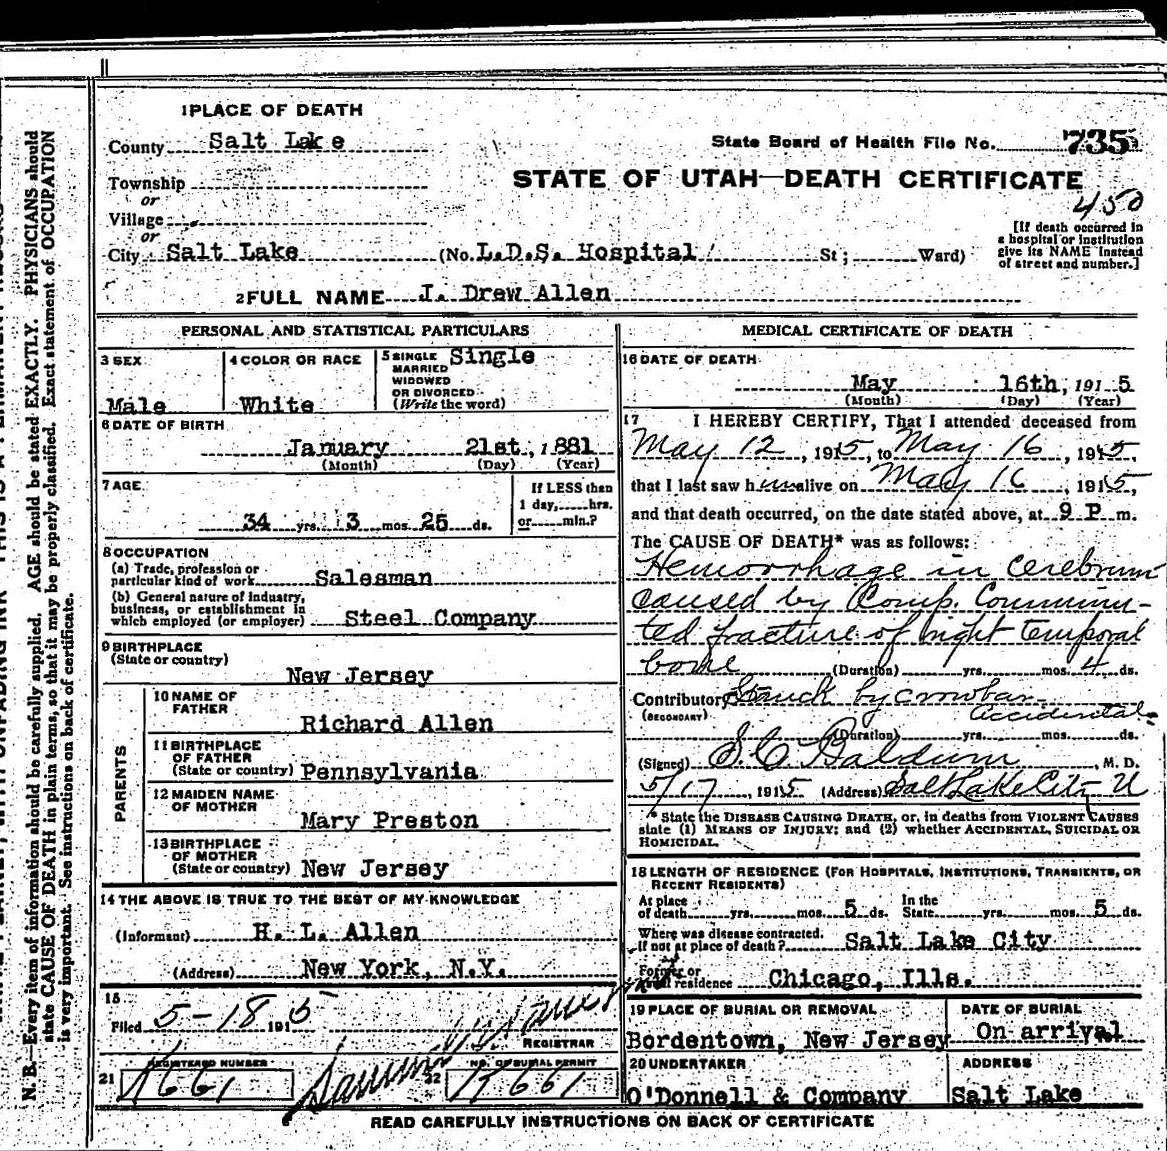 1 PLACE OF DEATH
County Salt Lake
State Board of Health File No. 735
Township
or
STATE OF UTAH—DEATH CERTIFICATE
450
Village
or
City Salt Lake (No. L.D.S. Hospital St; Ward)
[If death occurred in
a hospital or institution
give its NAME instead
of street and number.]
2 FULL NAME J. Drew Allen
PERSONAL AND STATISTICAL PARTICULARS
3 SEX
Male
4 COLOR OR RACE
White
5 SINGLE
MARRIED
WIDOWED
OR DIVORCED
(Write the word)
Single
6 DATE OF BIRTH
January 21st, 1881
(Month) (Day) (Year)
7 AGE
34 yrs. 3 mos. 25 ds.
If LESS than
1 day, hrs.
or min.?
8 OCCUPATION
(a) Trade, profession or
particular kind of work Salesman
(b) General nature of industry,
business, or establishment in
which employed (or employer) Steel Company
9 BIRTHPLACE
(State or country)
New Jersey
PARENTS
10 NAME OF
FATHER
Richard Allen
11 BIRTHPLACE
OF FATHER
(State or country) Pennsylvania
12 MAIDEN NAME
OF MOTHER
Mary Preston
13 BIRTHPLACE
OF MOTHER
(State or country) New Jersey
14 THE ABOVE IS TRUE TO THE BEST OF MY KNOWLEDGE
(Informant) H. L. Allen
(Address) New York, N.Y.
15
Filed 5-18 1915
REGISTRAR
REGISTERED NUMBER
21 K661
NO. OF BURIAL PERMIT
22 K661
MEDICAL CERTIFICATE OF DEATH
16 DATE OF DEATH
May 16th, 1915
(Month) (Day) (Year)
17 I HEREBY CERTIFY, That I attended deceased from
May 12, 1915, to May 16, 1915,
that I last saw him alive on May 16, 1915,
and that death occurred, on the date stated above, at 9 P m.
The CAUSE OF DEATH* was as follows:
Hemorrhage in cerebrum
caused by Comp. Comminu-
ted fracture of right temporal
bone (Duration) yrs. mos. 4 ds.
Contributory Struck by crowbar
(SECONDARY) accidental
(Duration) yrs. mos. ds.
(Signed) S. C. Baldwin, M. D.
5/17, 1915 (Address) Salt Lake City U
* State the DISEASE CAUSING DEATH, or, in deaths from VIOLENT CAUSES
state (1) MEANS OF INJURY; and (2) whether ACCIDENTAL, SUICIDAL OR
HOMICIDAL.
18 LENGTH OF RESIDENCE (FOR HOSPITALS, INSTITUTIONS, TRANSIENTS, OR
RECENT RESIDENTS)
At place
of death yrs. mos. 5 ds.
In the
State yrs. mos. 5 ds.
Where was disease contracted,
if not at place of death? Salt Lake City
Former or
usual residence Chicago, Ills.
19 PLACE OF BURIAL OR REMOVAL
Bordentown, New Jersey
DATE OF BURIAL
On arrival
20 UNDERTAKER
O'Donnell & Company
ADDRESS
Salt Lake
READ CAREFULLY INSTRUCTIONS ON BACK OF CERTIFICATE
N. B.—Every item of information should be carefully supplied. AGE should be stated EXACTLY. PHYSICIANS should
state CAUSE OF DEATH in plain terms, so that it may be properly classified. Exact statement of OCCUPATION
is very important. See instructions on back of certificate.